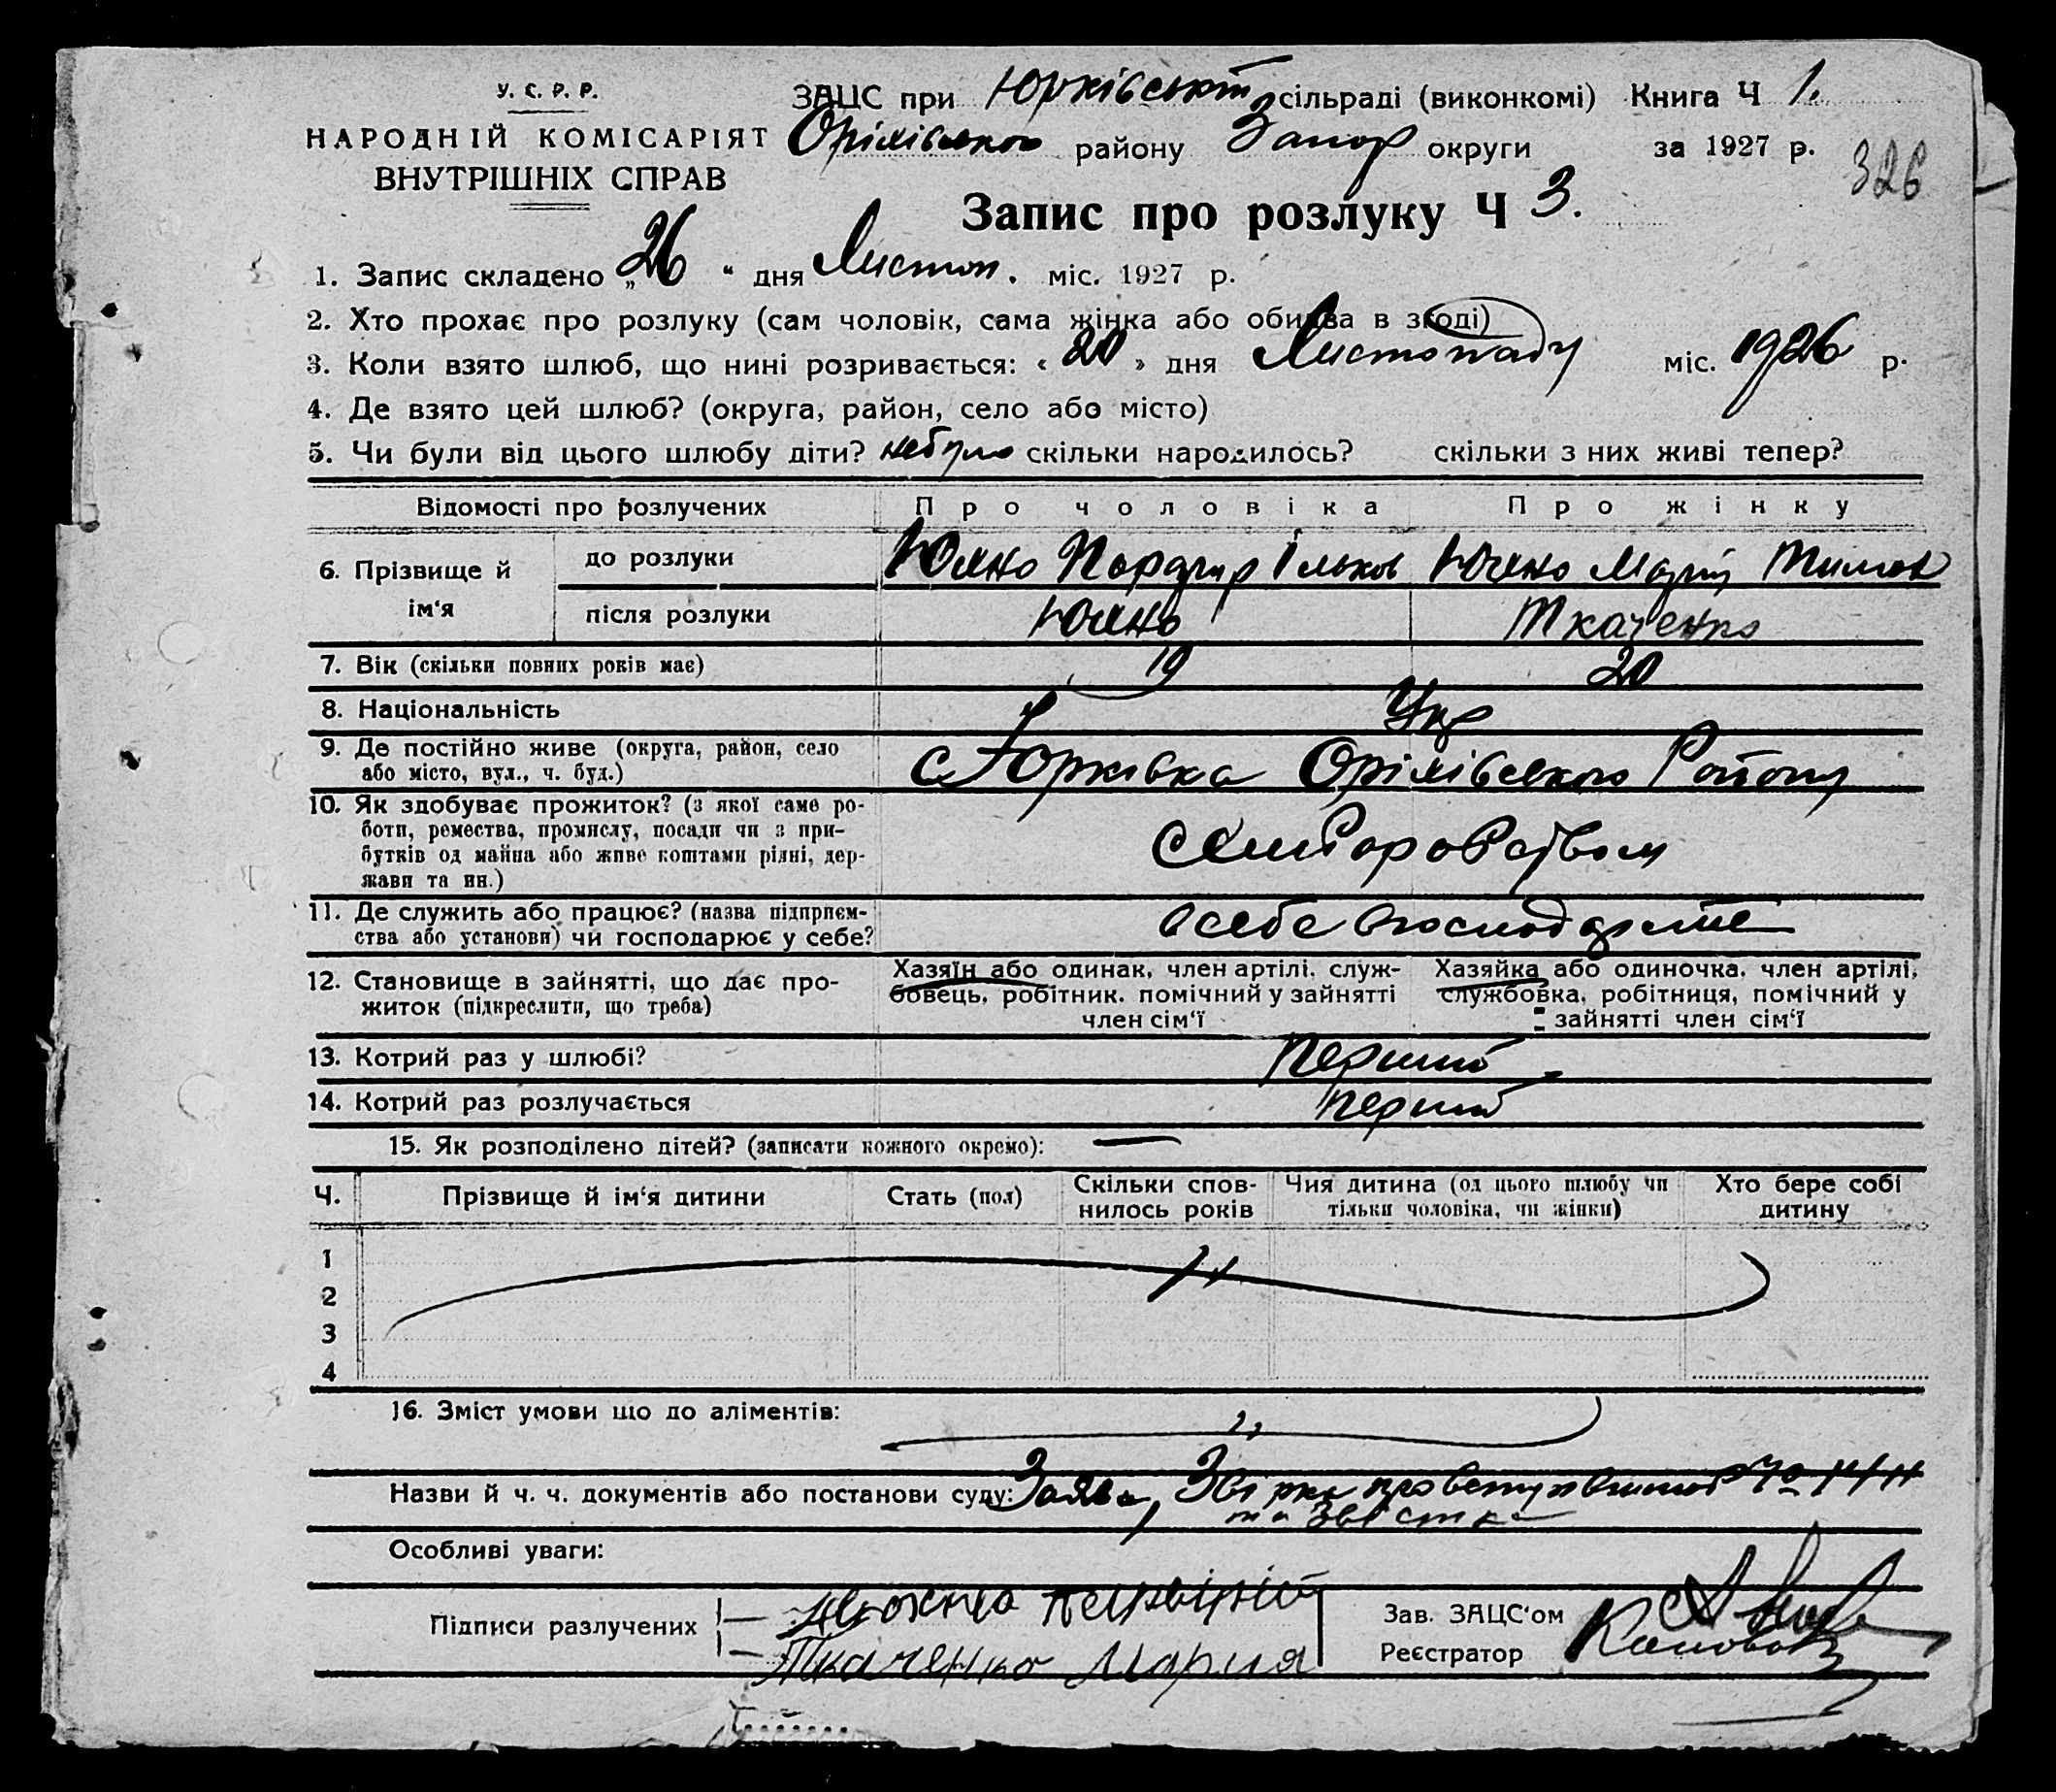 У. С. Р. Р.
НАРОДНІЙ КОМІСАРІЯТ
ВНУТРІШНІХ СПРАВ
ЗАЦС при Юрківській сільраді (виконкомі) Книга Ч 1.
Оріхівського району Запор округи за 1927 р.
326
Запис про розлуку Ч 3.
1. Запис складено „26" дня Листоп. міс. 1927 р.
2. Хто прохає про розлуку (сам чоловік, сама жінка або обидва в згоді)
3. Коли взято шлюб, що нині розривається: «20» дня Листопаду міс. 1926 р.
4. Де взято цей шлюб? (округа, район, село або місто)
5. Чи були від цього шлюбу діти? небуло скільки народилось? скільки з них живі тепер?
Відомості про розлучених Про чоловіка Про жінку
6. Прізвище й ім'я
до розлуки Юхно Ільков Юхно Тимоф
після розлуки Юхно Ткаченко
7. Вік (скільки повних років має) 19 20
8. Національність Укр
9. Де постійно живе (округа, район, село або місто, вул., ч. буд.) с Юрківка Оріхівського Району
10. Як здобуває прожиток? (з якої саме роботи, ремества, промислу, посади чи з прибутків од майна або живе коштами рідні, держави та ин.)
11. Де служить або працює? (назва підприємства або установи) чи господарює у себе? всебе
12. Становище в зайнятті, що дає прожиток (підкреслити, що треба)
Хазяїн або одинак, член артілі, службовець, робітник, помічний у зайнятті член сім'ї
Хазяйка або одиночка, член артілі, службовка, робітниця, помічний у зайнятті член сім'ї
13. Котрий раз у шлюбі? перший
14. Котрий раз розлучається перший
15. Як розподілено дітей? (записати кожного окремо): —
Ч. Прізвище й ім'я дитини Стать (пол) Скільки сповнилось років Чия дитина (од цього шлюбу чи тільки чоловіка, чи жінки) Хто бере собі дитину
1
2
3
4
16. Зміст умови що до аліментів:
Назви й ч. ч. документів або постанови суду: Заява,
та Звістка
Особливі уваги:
Підписи разлучених
Ткаченко Мария
Зав. ЗАЦС'ом
Реєстратор